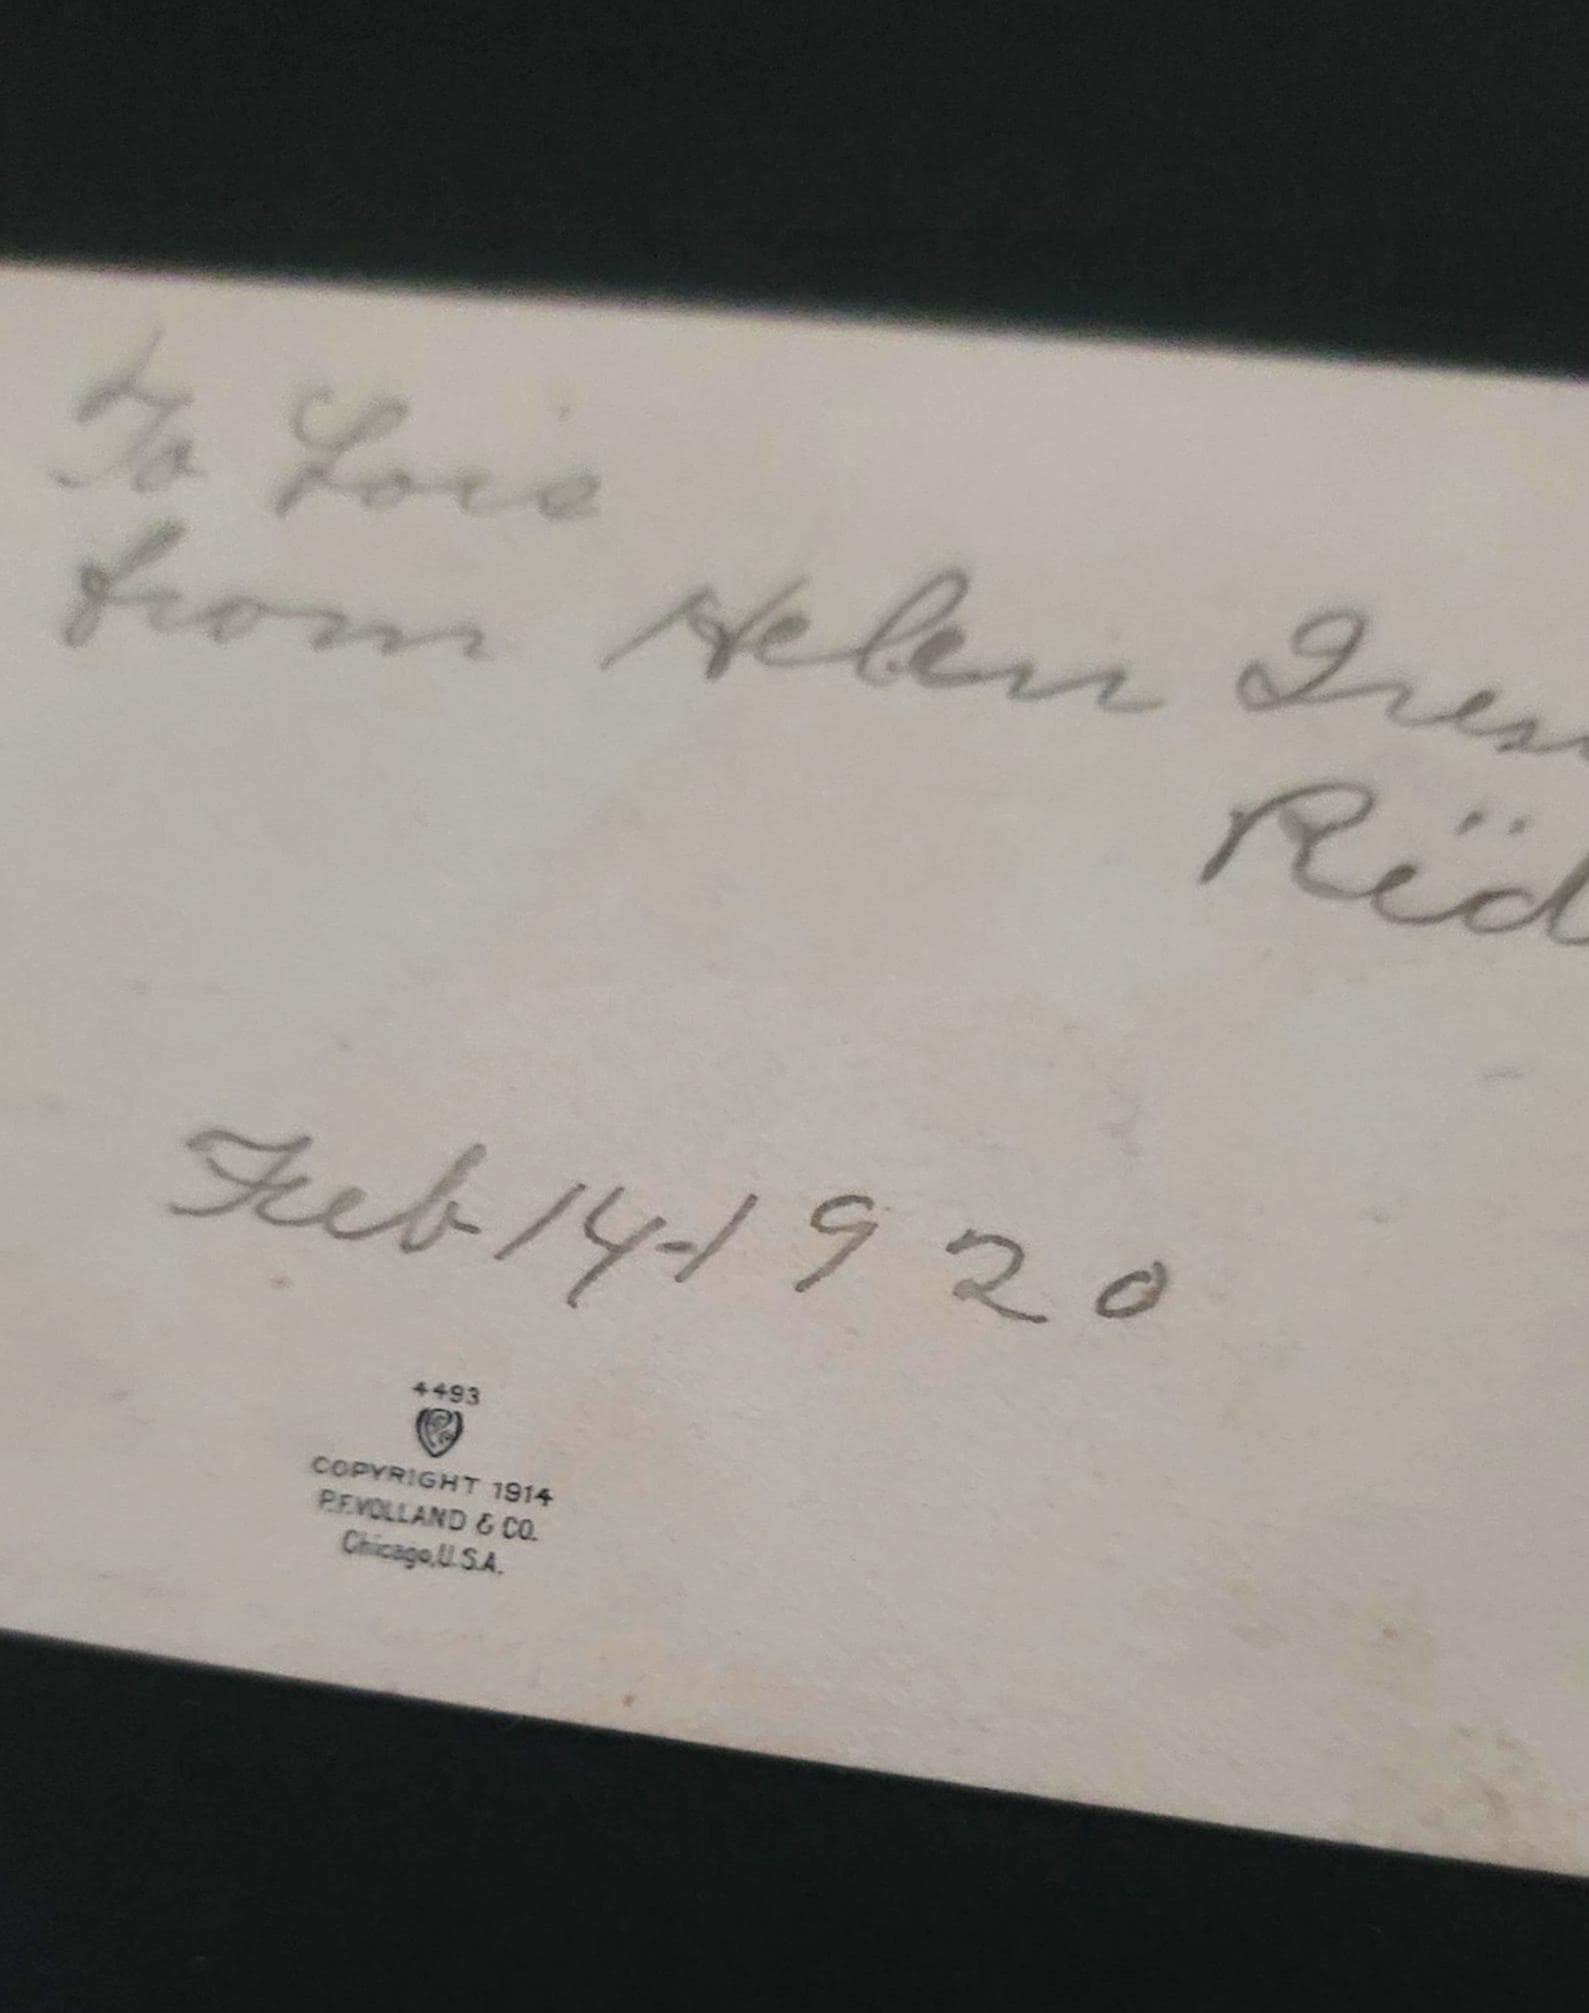 To Lois
from Helen
Feb 14-1920
4493
COPYRIGHT 1914
P.F. VOLLAND & CO.
Chicago, U.S.A.